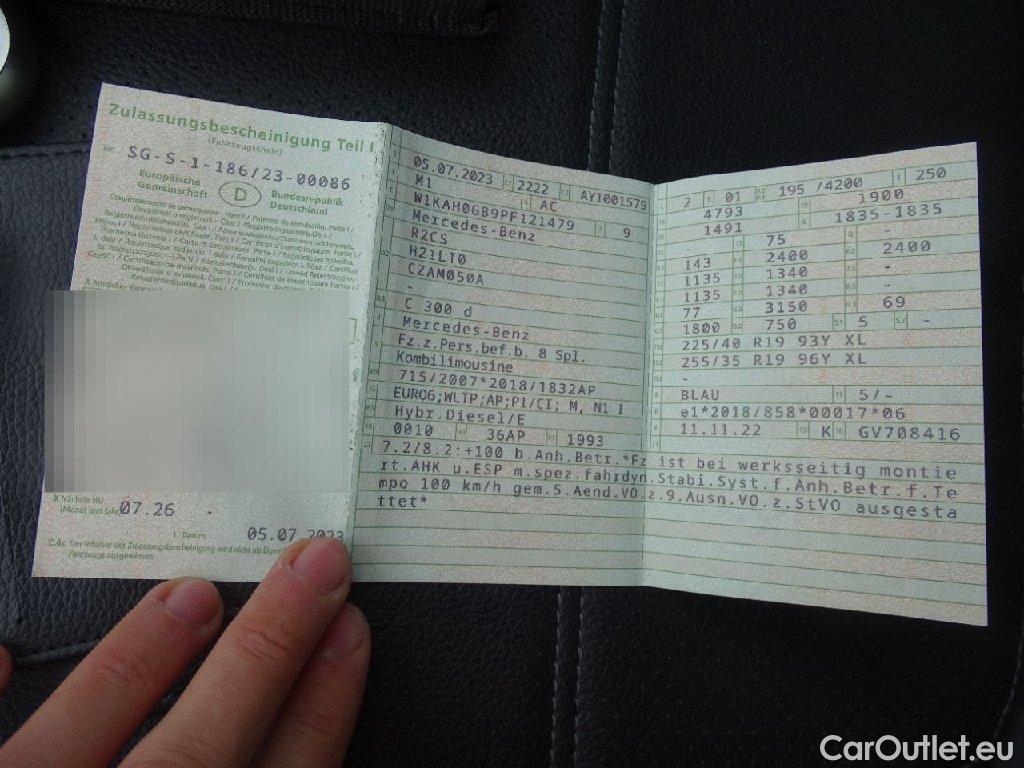 Zulassungsbescheinigung Teil I
(Fahrzeugschein)
Nr. SG-S-1-186/23-00086
Europäische Gemeinschaft
D
Bundesrepublik Deutschland
X Nächste HU
(Monat und Jahr) 07.26
I Datum 05.07.2023
C.4c Der Inhaber der Zulassungsbescheinigung wird nicht als
Fahrzeugs ausgewiesen.
05.07.2023 2222 AY1001579
M1 AC
W1KAH0GB9PF121479 9
Mercedes-Benz
R2CS
H21LT0
CZAM050A
-
C 300 d
Mercedes-Benz
Fz.z.Pers.bef.b. 8 Spl.
Kombilimousine
715/2007*2018/1832AP
EURO6;WLTP;AP;PI/CI; M, N1 I
Hybr.Diesel/E
0010 36AP 1993
2 01 195 /4200 250
4793 1900
1491 1835-1835
- 75 -
143 2400 2400
1135 1340 -
1135 1340 -
77 3150 69
1800 750 5 -
225/40 R19 93Y XL
255/35 R19 96Y XL
-
BLAU 5/-
e1*2018/858*00017*06
11.11.22 K GV708416
7.2/8.2:+100 b.Anh.Betr.*Fz ist bei werksseitig montie
rt.AHK u.ESP m.spez.fahrdyn.Stabi.Syst.f.Anh.Betr.f.Te
mpo 100 km/h gem.5.Aend.VO.z.9.Ausn.VO.z.StVO ausgesta
ttet*
CarOutlet.eu